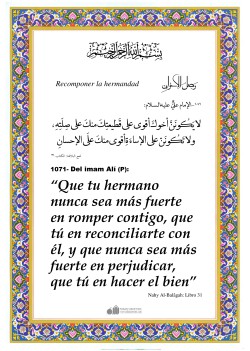 بسم الله الرحمن الرحيم
Recomponer la hermandad
وصل الإخوان
١٠٧١- الإمام عليّ عليه السلام:
لا يكوننّ أخوك أقوى على قطيعتك منك على صلته،
ولا يكوننّ على الإساءة أقوى منك على الإحسان
1071- Del imam Ali (P):
“Que tu hermano
nunca sea más fuerte
en romper contigo, que
tú en reconciliarte con
él, y que nunca sea más
fuerte en perjudicar,
que tú en hacer el bien”
Nahy Al-Balâgah: Libro 31